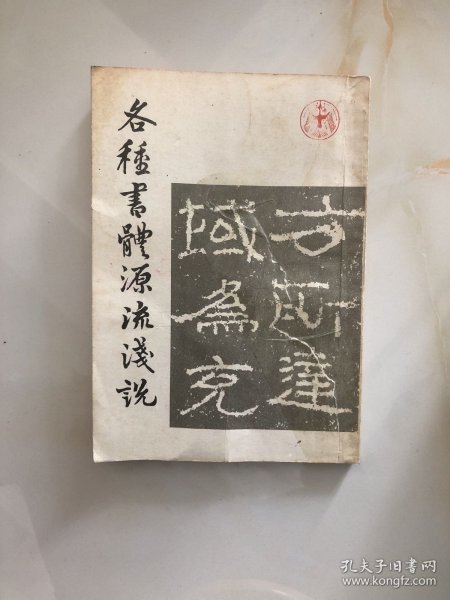 各種書體源流淺說
方祈達
域為充
孔夫子旧书网
www.kongfz.com